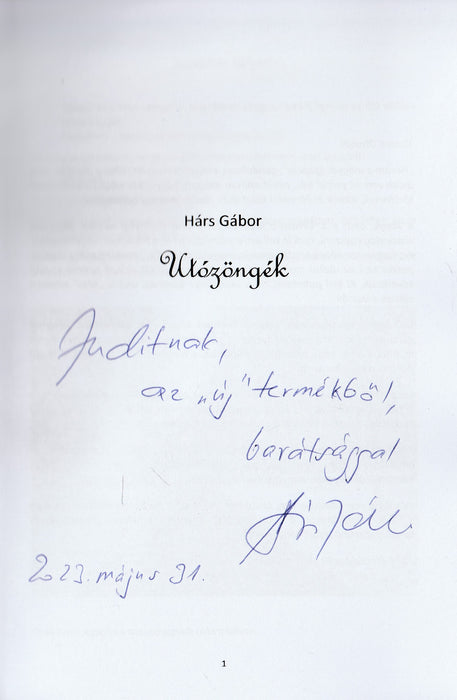 Hárs Gábor
Utózöngék
Juditnak,
az „új" termékből,
barátsággal
2023. május 31.
1